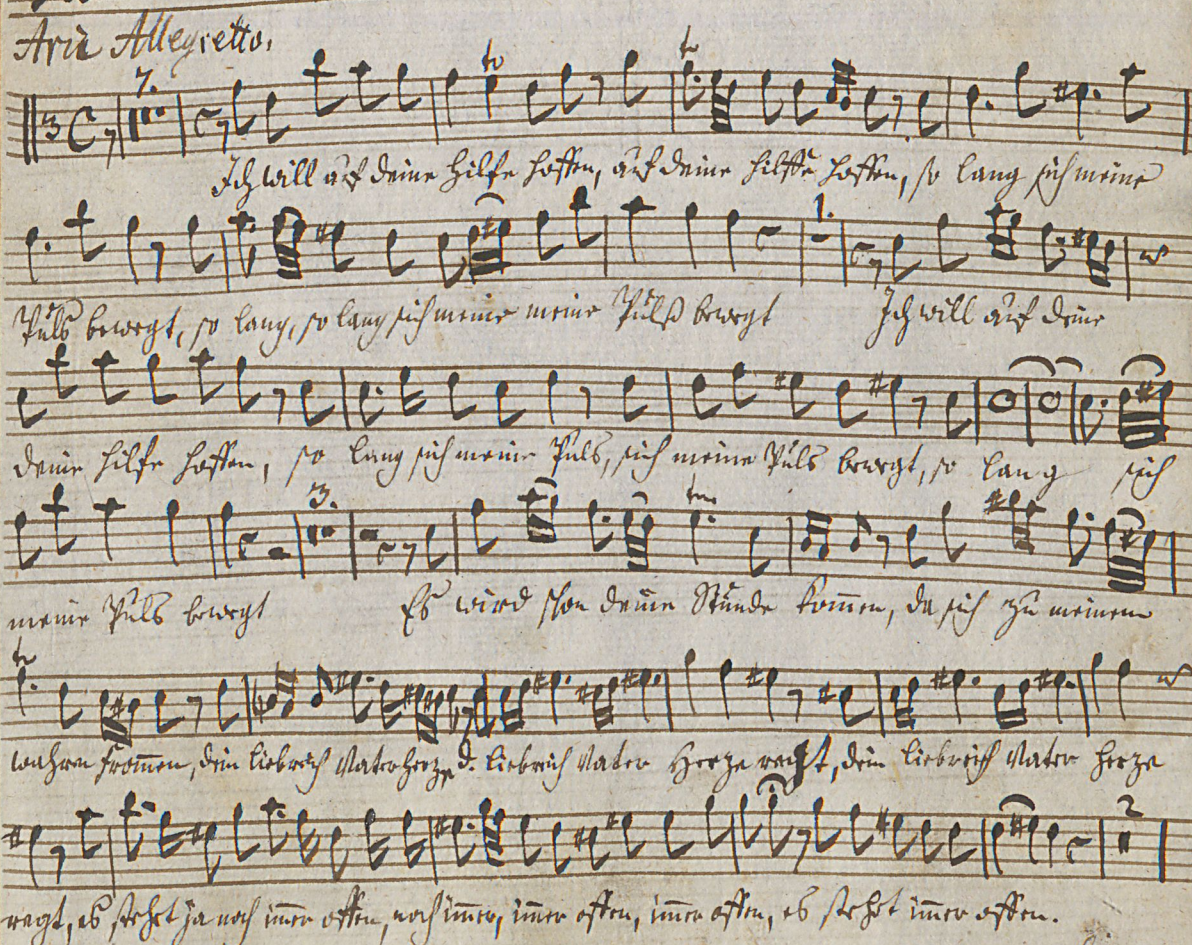 Aria Allegretto.
7.
Ich will auf deine Hilfe hoffen, auf deine Hilffe hoffen, so lang sich meine
1.
Puls bewegt, so lang, so lang sich meine meine Pulß bewegt Ich will auf deine
deine Hilfe hoffen, so lang sich meine Puls, sich meine Puls bewegt, so lang sich
3.
meine Puls bewegt Es wird schon deine Stunde kom̄en, da sich zu meinem
wahren From̄en, dein liebreich Vaterherze d. liebreich Vater Herze regt, dein liebreich Vater herze
2
regt, es stehet ja noch im̄er offen, noch im̄er, im̄er offen, im̄er offen, es stehet im̄er offen.